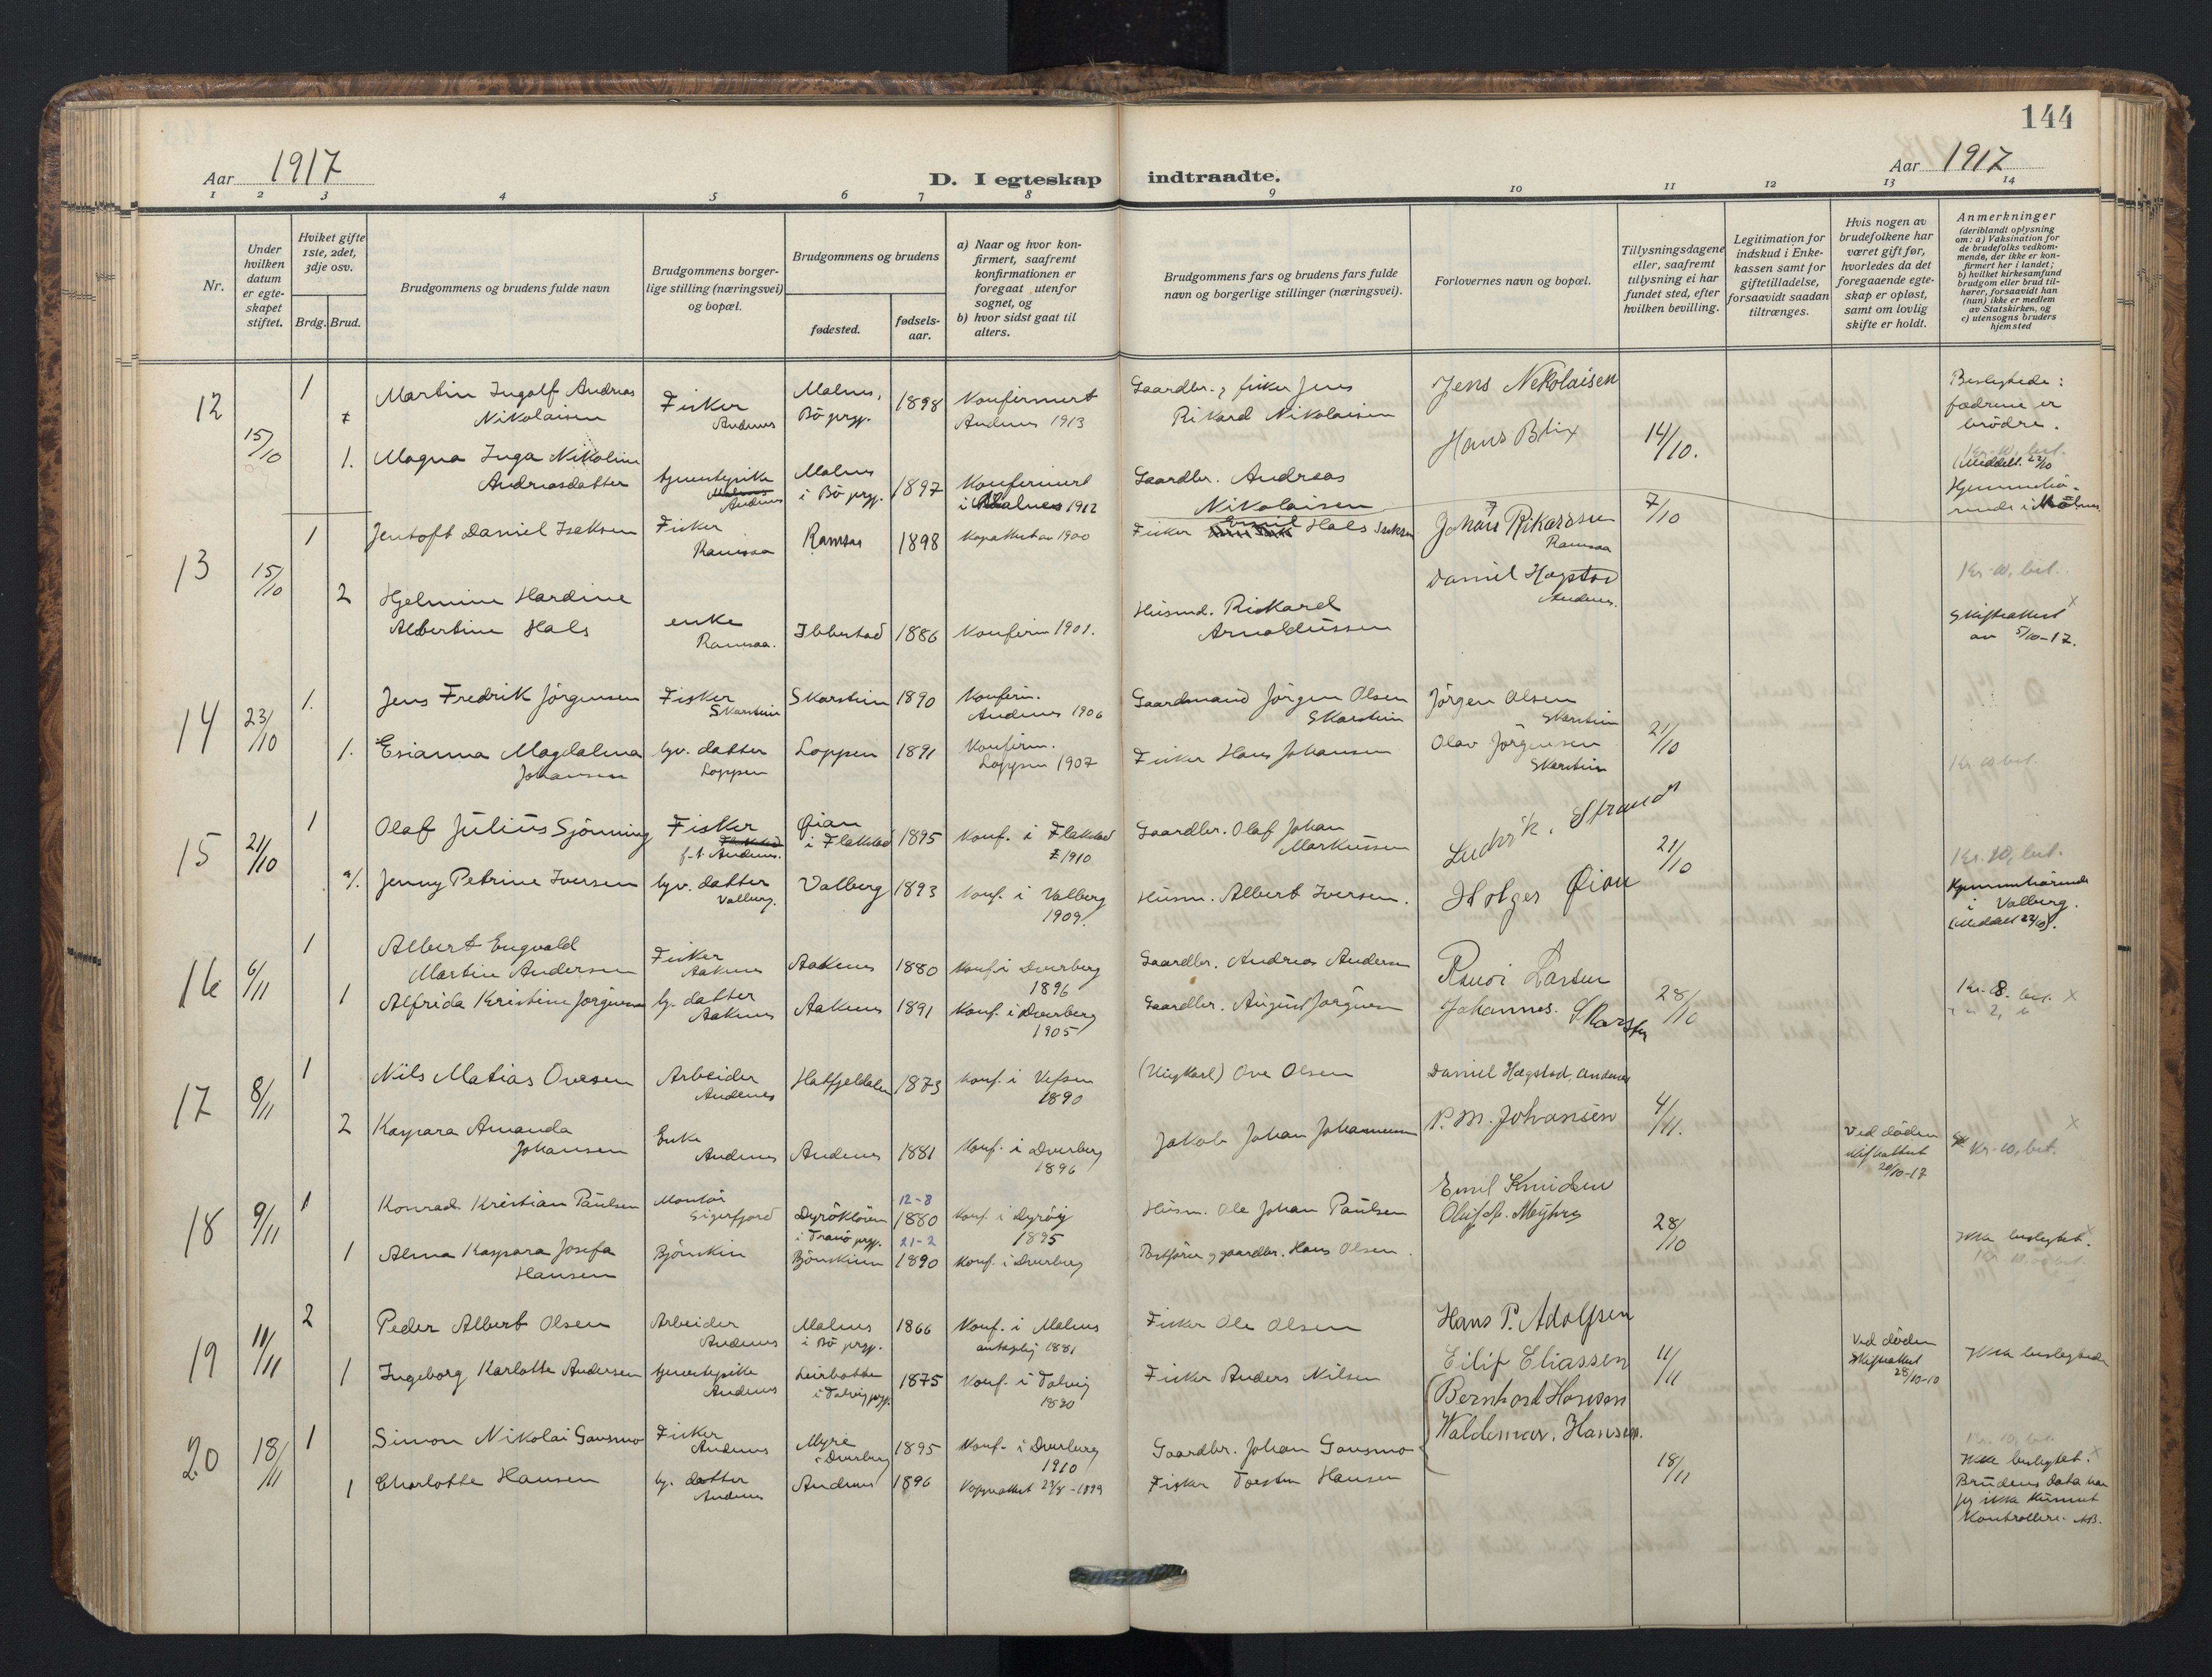 144
Aar 1917
D. I egteskap indtraadte.
Aar 1917
1 2 3 4 5 6 7 8 9 10 11 12 13 14
Nr.
Under hvilken datum er egteskapet stiftet.
Hviket gifte 1ste, 2det, 3dje osv.
Brdg. Brud.
Brudgommens og brudens fulde navn
Brudgommens borgerlige stilling (næringsvei) og bopæl.
Brudgommens og brudens
fødested.
fødselsaar.
a) Naar og hvor konfirmert, saafremt konfirmationen er foregaat utenfor sognet, og
b) hvor sidst gaat til alters.
Brudgommens fars og brudens fars fulde navn og borgerlige stillinger (næringsvei).
Forlovernes navn og bopæl.
Tillysningsdagene eller, saafremt tillysning ei har fundet sted, efter hvilken bevilling.
Legitimation for indskud i Enkekassen samt for giftetilladelse, forsaavidt saadan tiltrænges.
Hvis nogen av brudefolkene har været gift før, hvorledes da det foregaaende egteskap er opløst, samt om lovlig skifte er holdt.
Anmerkninger (deriblandt oplysning om: a) Vaksination for de brudefolks vedkommende, der ikke er konfirmert her i landet; b) hvilket kirkesamfund brudgom eller brud tilhører, forsaavidt han (hun) ikke er medlem av Statskirken, og c) utensogns bruders hjemsted
12 15/10 1 Martin Ingolf Andreas Nikolaisen Fisker Andenes Malnes, Bö prgj. 1898 Konfirmert Andenes 1913 Gaardbr. og fisker Jens Rikard Nikolaisen Jens Nikolaisen 14/10. Beslegtede: fædrene er brödre.
1. Magna Inga Nikoline Andreasdatter tjenestepike Andenes Malnes i Bö prgj. 1897 Konfirmert i Malnes 1912 Gaardbr. Andreas Nikolaisen Hans Blix Kr. 10, bet. (Meddelt 22/10 Hjemmehörende i Malnes
13 15/10 1 Jentoft Daniel Isaksen Fisker Ramsaa Ramsaa 1898 Kopattest av 1900 Fisker Emil Hals Isaksen Johan Rikardsen Ramsaa 7/10
2 Hjelmine Hardine Albertine Hals enke Ramsaa. Ibbestad 1886 Konfirm 1901. Husmd. Rikard Arnoldussen Daniel Hægstad Andenes. Kr. 10, bet. Skifteattest av 5/10-17.
14 23/10 1. Jens Fredrik Jörgensen Fisker Skarstein Skarstein 1890 Konfirm. Andenes 1906 Gaardmand Jörgen Olsen Skarstein Jörgen Olsen Skarstein 21/10
1. Esianna Magdalena Johansen hjv. datter Loppen Loppen 1891 Konfirm. Loppen 1907 Fisker Hans Johansen Olav Jörgensen Skarstein Kr. 10 bet.
15 21/10 1 Olaf Julius Sjönning Fisker f.t. Andenes. Øian i Flakstad 1895 Konf. i Flakstad 1910 Gaardbr. Olaf Johan Markussen Ludvik. Strand 21/10
1. Jenny Petrine Iversen hjv. datter Valberg. Valberg 1893 Konf. i Valberg 1909. Husm. Albert Iversen. Holger Øian Kr. 10, bet. Hjemmehörende i Valberg. (Meddelt 22/10).
16 6/11 1 Albert Engvald Martin Andersen Fisker Aaknes Aaknes 1880 Konf. i Dverberg 1896 Gaardbr. Andreas Andersen Larsen 28/10
1 Alfrida Kristine Jörgensen hj. datter Aaknes Aaknes 1891 Konf. i Dverberg 1905 Gaardbr. August Jörgensen Johannes. Skarsten Kr. 8. bet. x
17 8/11 1 Nils Matias Ovesen Arbeider Andenes Hatfjeldalen 1873 Konf. i Vefsen 1890 (Ungkarl) Ove Olsen Daniel Hægstad, Andenes 4/11.
2 Kaspara Amanda Johansen Enke Andenes Andenes 1881 Konf. i Dverberg 1896 Jakob Johan Johannessen P. M. Johansen Ved döden skifteattest 20/10-17 Kr. 10, bet. x
18 9/11 1 Konrad Kristian Paulsen Montör Sigerfjord Dyröklöven i Tranö prgj. 12-8 1880 Konf. i Dyröy 1895 Husm. Ole Johan Paulsen Emil Knudsen 28/10
1 Alma Kaspara Josefa Hansen Björnskin Björnskinn 21-2 1890 Konf. i Dverberg Postförer og gaardbr. Hans Olsen. Ikke beslegtet. x Kr. 10. bet.
19 11/11 2 Peder Albert Olsen Arbeider Andenes Malnes i Bö prgj. 1866 Konf. i Malnes antagelig 1881 Fisker Ole Olsen Hans P. Adolfsen 11/11 Ved döden skifteattest 28/10-10 Ikke beslegtede
1 Ingeborg Karlotte Andersen tjenestepike Andenes Leirbotten i Talvig prgj. 1875 Konf. i Talvig 1890 Fisker Anders Nilsen Eilif Eliassen
20 18/11 1 Simon Nikolai Gausmo Fisker Andenes Myre i Dverberg 1895 Konf. i Dverberg 1910 Gaardbr. Johan Gausmo Bernhard Hansen Waldemar. Hansen. 18/11
1 Charlotte Hansen hj. datter Andenes Andenes 1896 Koppeattest 23/8-1899 Fisker Torsten Hansen Kr. 10, bet. Ikke beslegtet. x Brudens data har jeg ikke kunnet kontrollere.